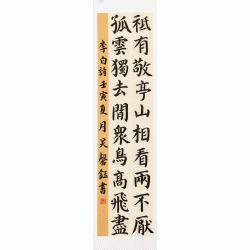 祗有敬亭山相看兩不厭
孤雲獨去閒衆鳥髙飛盡
李白詩壬寅夏月吴馨鈺書